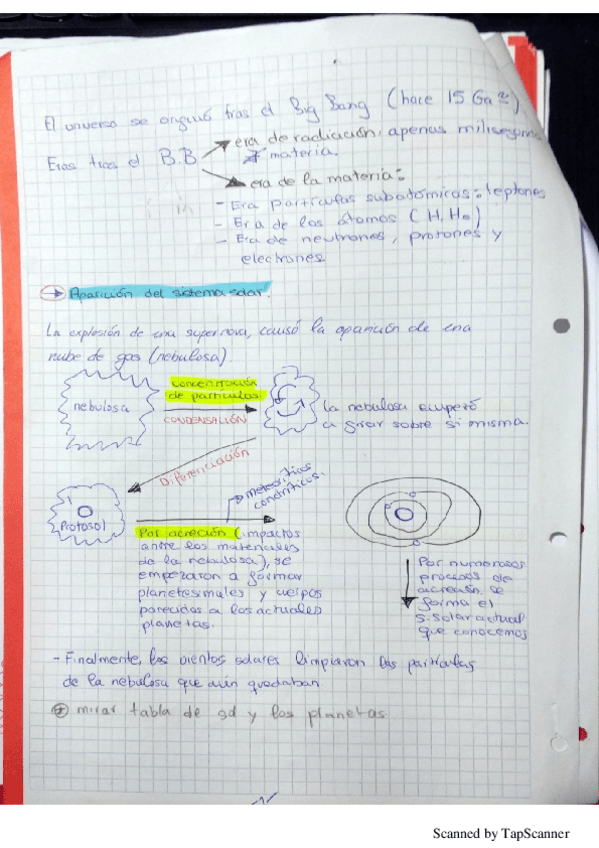 El universo se originó tras el Big Bang (hace 15 Ga
Eras tras el B.B
era de radiación: apenas miliseguns
materia.
era de la materia:
- Era partículas subatómicas: leptones
- Era de los átomos (H, He)
- Era de neutrones, protones y
electrones
Aparición del sistema solar.
La explosión de una supernova, causó la aparición de una
nube de gas (nebulosa)
nebulosa
Concentración
de partículas
CONDENSACIÓN
La nebulosa empezó
a girar sobre si misma.
Diferenciación
Protosol
meteoritos
condríticos.
Por acreción (impactos
entre los materiales
de la nebulosa), se
empezaron a formar
planetesimales y cuerpos
parecidos a los actuales
planetas.
Por numerosos
procesos de
acreción, se
forma el
S. Solar actual
que conocemos
- Finalmente, los vientos solares limpiaron las partículas
de la nebulosa que aún quedaban
mirar tabla de gd y los planetas
Scanned by TapScanner